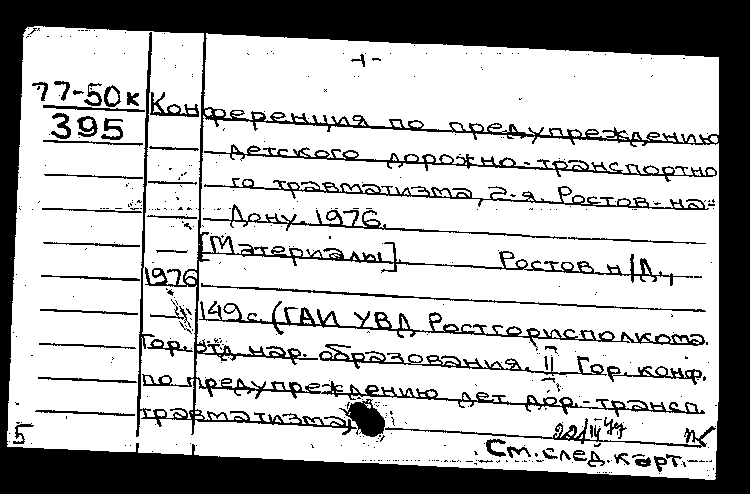 -1-
77-50к
395
Конференция по предупреждению
детского дорожно-транспортно
го травматизма, 2-я. Ростов-на-
Дону. 1976.
[Материалы]. Ростов н/Д.,
1976
149с. (ГАИ УВД Ростгорисполкома.
Гор. отд нар. образования. II Гор. конф.
по предупреждению дет дор.-трансп.
травматизма)
22/III 77
5
См. след. карт.